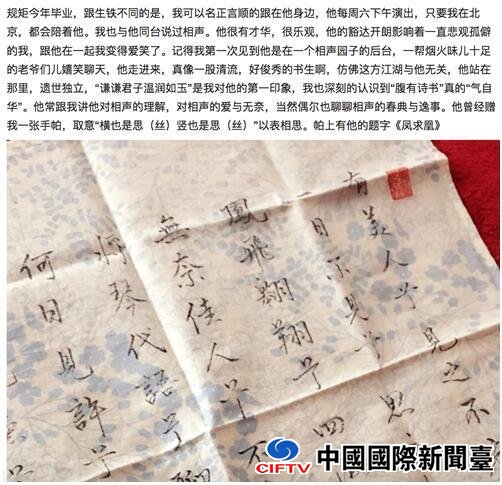 规矩今年毕业，跟生铁不同的是，我可以名正言顺的跟在他身边，他每周六下午演出，只要我在北
京，都会陪着他。我也与他同台说过相声。他很有才华，很乐观，他的豁达开朗影响着一直悲观孤僻
的我，跟他在一起我变得爱笑了。记得我第一次见到他是在一个相声园子的后台，一帮烟火味儿十足
的老爷们儿嬉笑聊天，他走进来，真像一股清流，好俊秀的书生啊，仿佛这方江湖与他无关，他站在
那里，遗世独立，“谦谦君子温润如玉”是我对他的第一印象，我也深刻的认识到“腹有诗书”真的“气自
华”。他常跟我讲他对相声的理解，对相声的爱与无奈，当然偶尔也聊聊相声的春典与逸事。他曾经赠
我一张手帕，取意“横也是思（丝）竖也是思（丝）”以表相思。帕上有他的题字《凤求凰》
有美人兮見之不
一日不見兮思
鳳飛翱翔兮四
無奈佳人兮不
將琴代語兮聊
何日見許兮
CIFTV
中國國際新聞臺